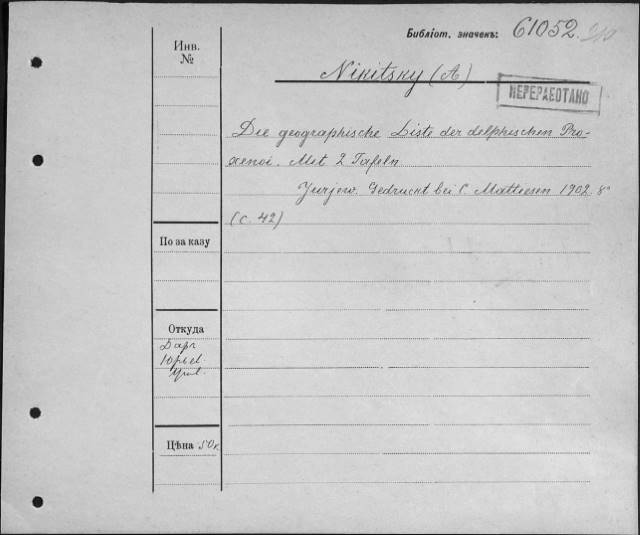 Библіот. значекъ: 61052
Инв.
№
Nikitsky (A)
ПЕРЕРАБОТАНО
Die geographische Liste der delphischen Pro-
xenoi. Mit 2 Tafeln
Jurjew. Gedruckt bei C. Mattiesen 1902. 8°
(с. 42)
По заказу
Откуда
Даръ
Юрьев.
Унив.
Цѣна 50к